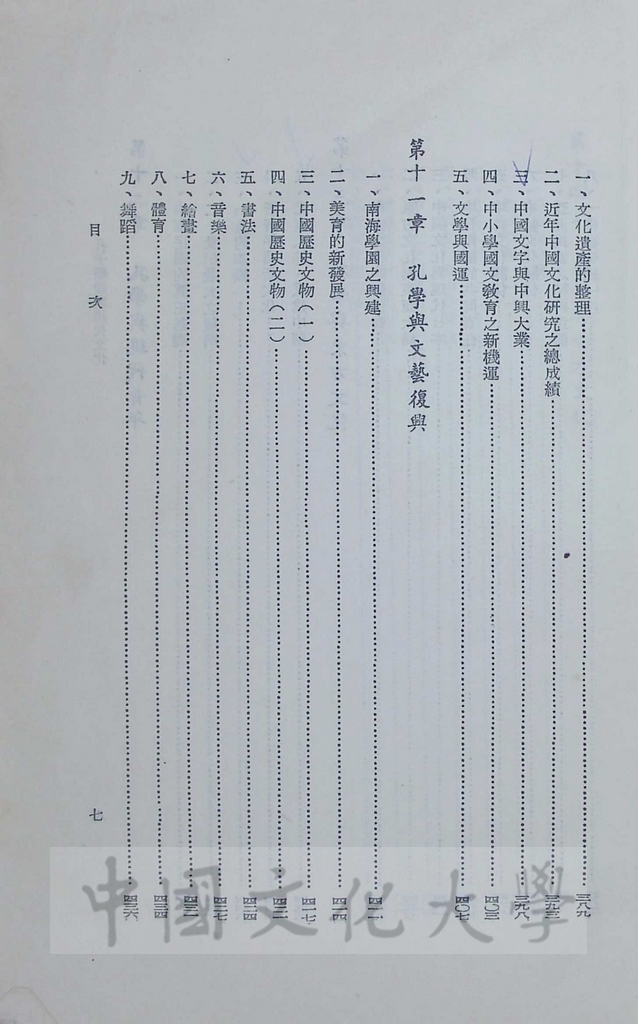 一、文化遺產的整理……三八九
二、近年中國文化研究之總成績……三九三
三、中國文字與中興大業……三九八
四、中小學國文敎育之新機運……四〇三
五、文學與國運……四〇七
第十一章 孔學與文藝復興
一、南海學園之興建……四一一
二、美育的新發展……四一四
三、中國歷史文物(一)……四一七
四、中國歷史文物(二)……
五、書法……
六、音樂……四二七
七、繪畫……
八、體育……
九、舞蹈……四三六
目次
七
中國文化大學